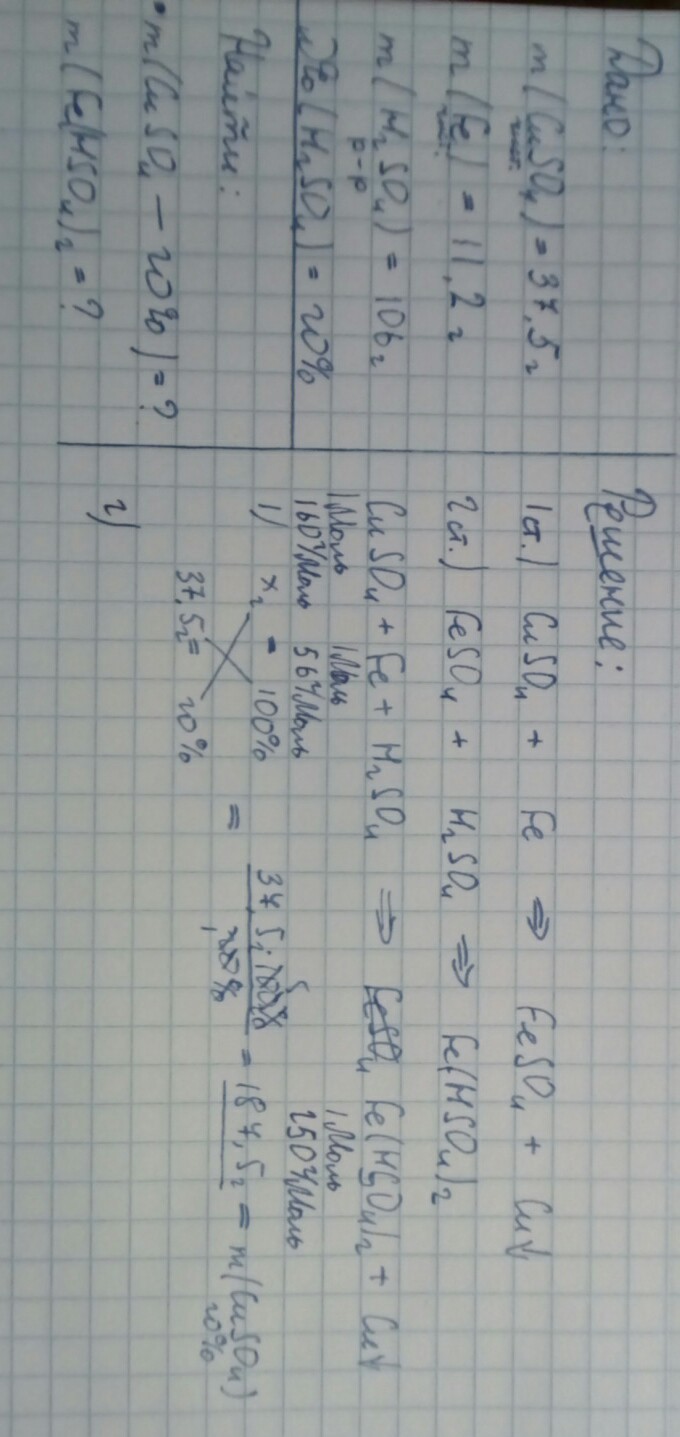 Дано:
m(CuSO₄) = 37,5 г
m(Fe) = 11,2 г
m(H₂SO₄) = 106 г
р-р
w%(H₂SO₄) = 20%
Найти:
m(CuSO₄ – 20%) = ?
m(Fe(HSO₄)₂ = ?
Решение:
1ст.) CuSO₄ + Fe ⇒ FeSO₄ + Cu↓
2ст.) FeSO₄ + H₂SO₄ ⇒ Fe(HSO₄)₂
CuSO₄ + Fe + H₂SO₄ ⇒ Fe(HSO₄)₂ + Cu↓
1Моль 1Моль 1Моль
160г/Моль 56г/Моль 250г/Моль
1) xг = 100%
37,5г = 20%
= 37,5г · 100% / 20% = 187,5г = m(CuSO₄)
20%
2)